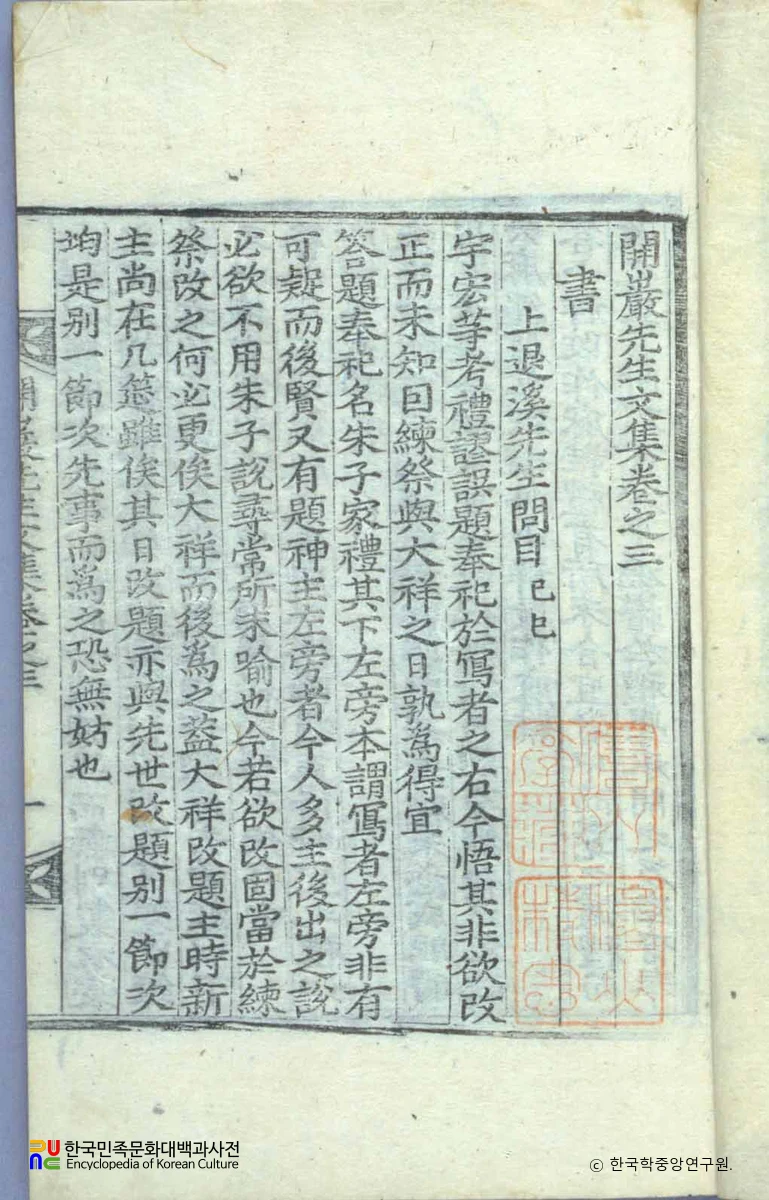 開巖先生文集卷之三
書
上退溪先生問目 己巳
宇宏等考禮謬誤題奉祀於寫者之右今悟其非欲改
正而未知回練祭與大祥之日孰爲得宜
答題奉祀名朱子家禮其下左旁本謂寫者左旁非有
可疑而後賢又有題神主左旁者今人多主後出之說
必欲不用朱子說尋常所未喩也今若欲改固當於練
祭改之何必更俟大祥而後爲之蓋大祥改題主時新
主尚在几筵雖俟其日改題亦與先世改題別一節次
均是別一節次先事而爲之恐無妨也
開巖先生文集卷之三
一
한국민족문화대백과사전
Encyclopedia of Korean Culture
© 한국학중앙연구원.